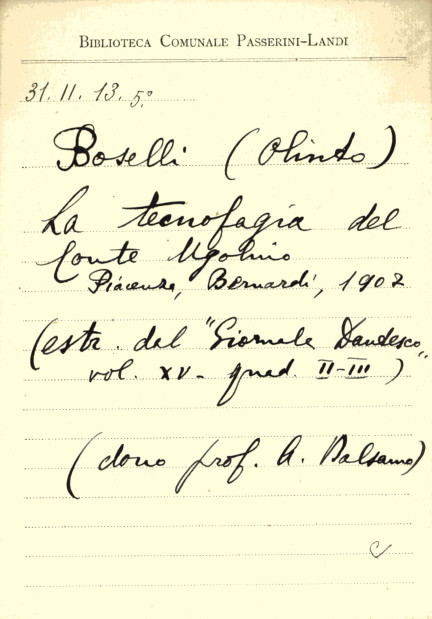 BIBLIOTECA COMUNALE PASSERINI-LANDI
31. II. 13. 5°
Boselli (Olinto)
La tecnofagia del
Conte Ugolino
Piacenza, Bernardi, 1907
(estr. dal "Giornale Dantesco"
vol. XV - quad. II-III)
(dono prof. A. Balsamo)